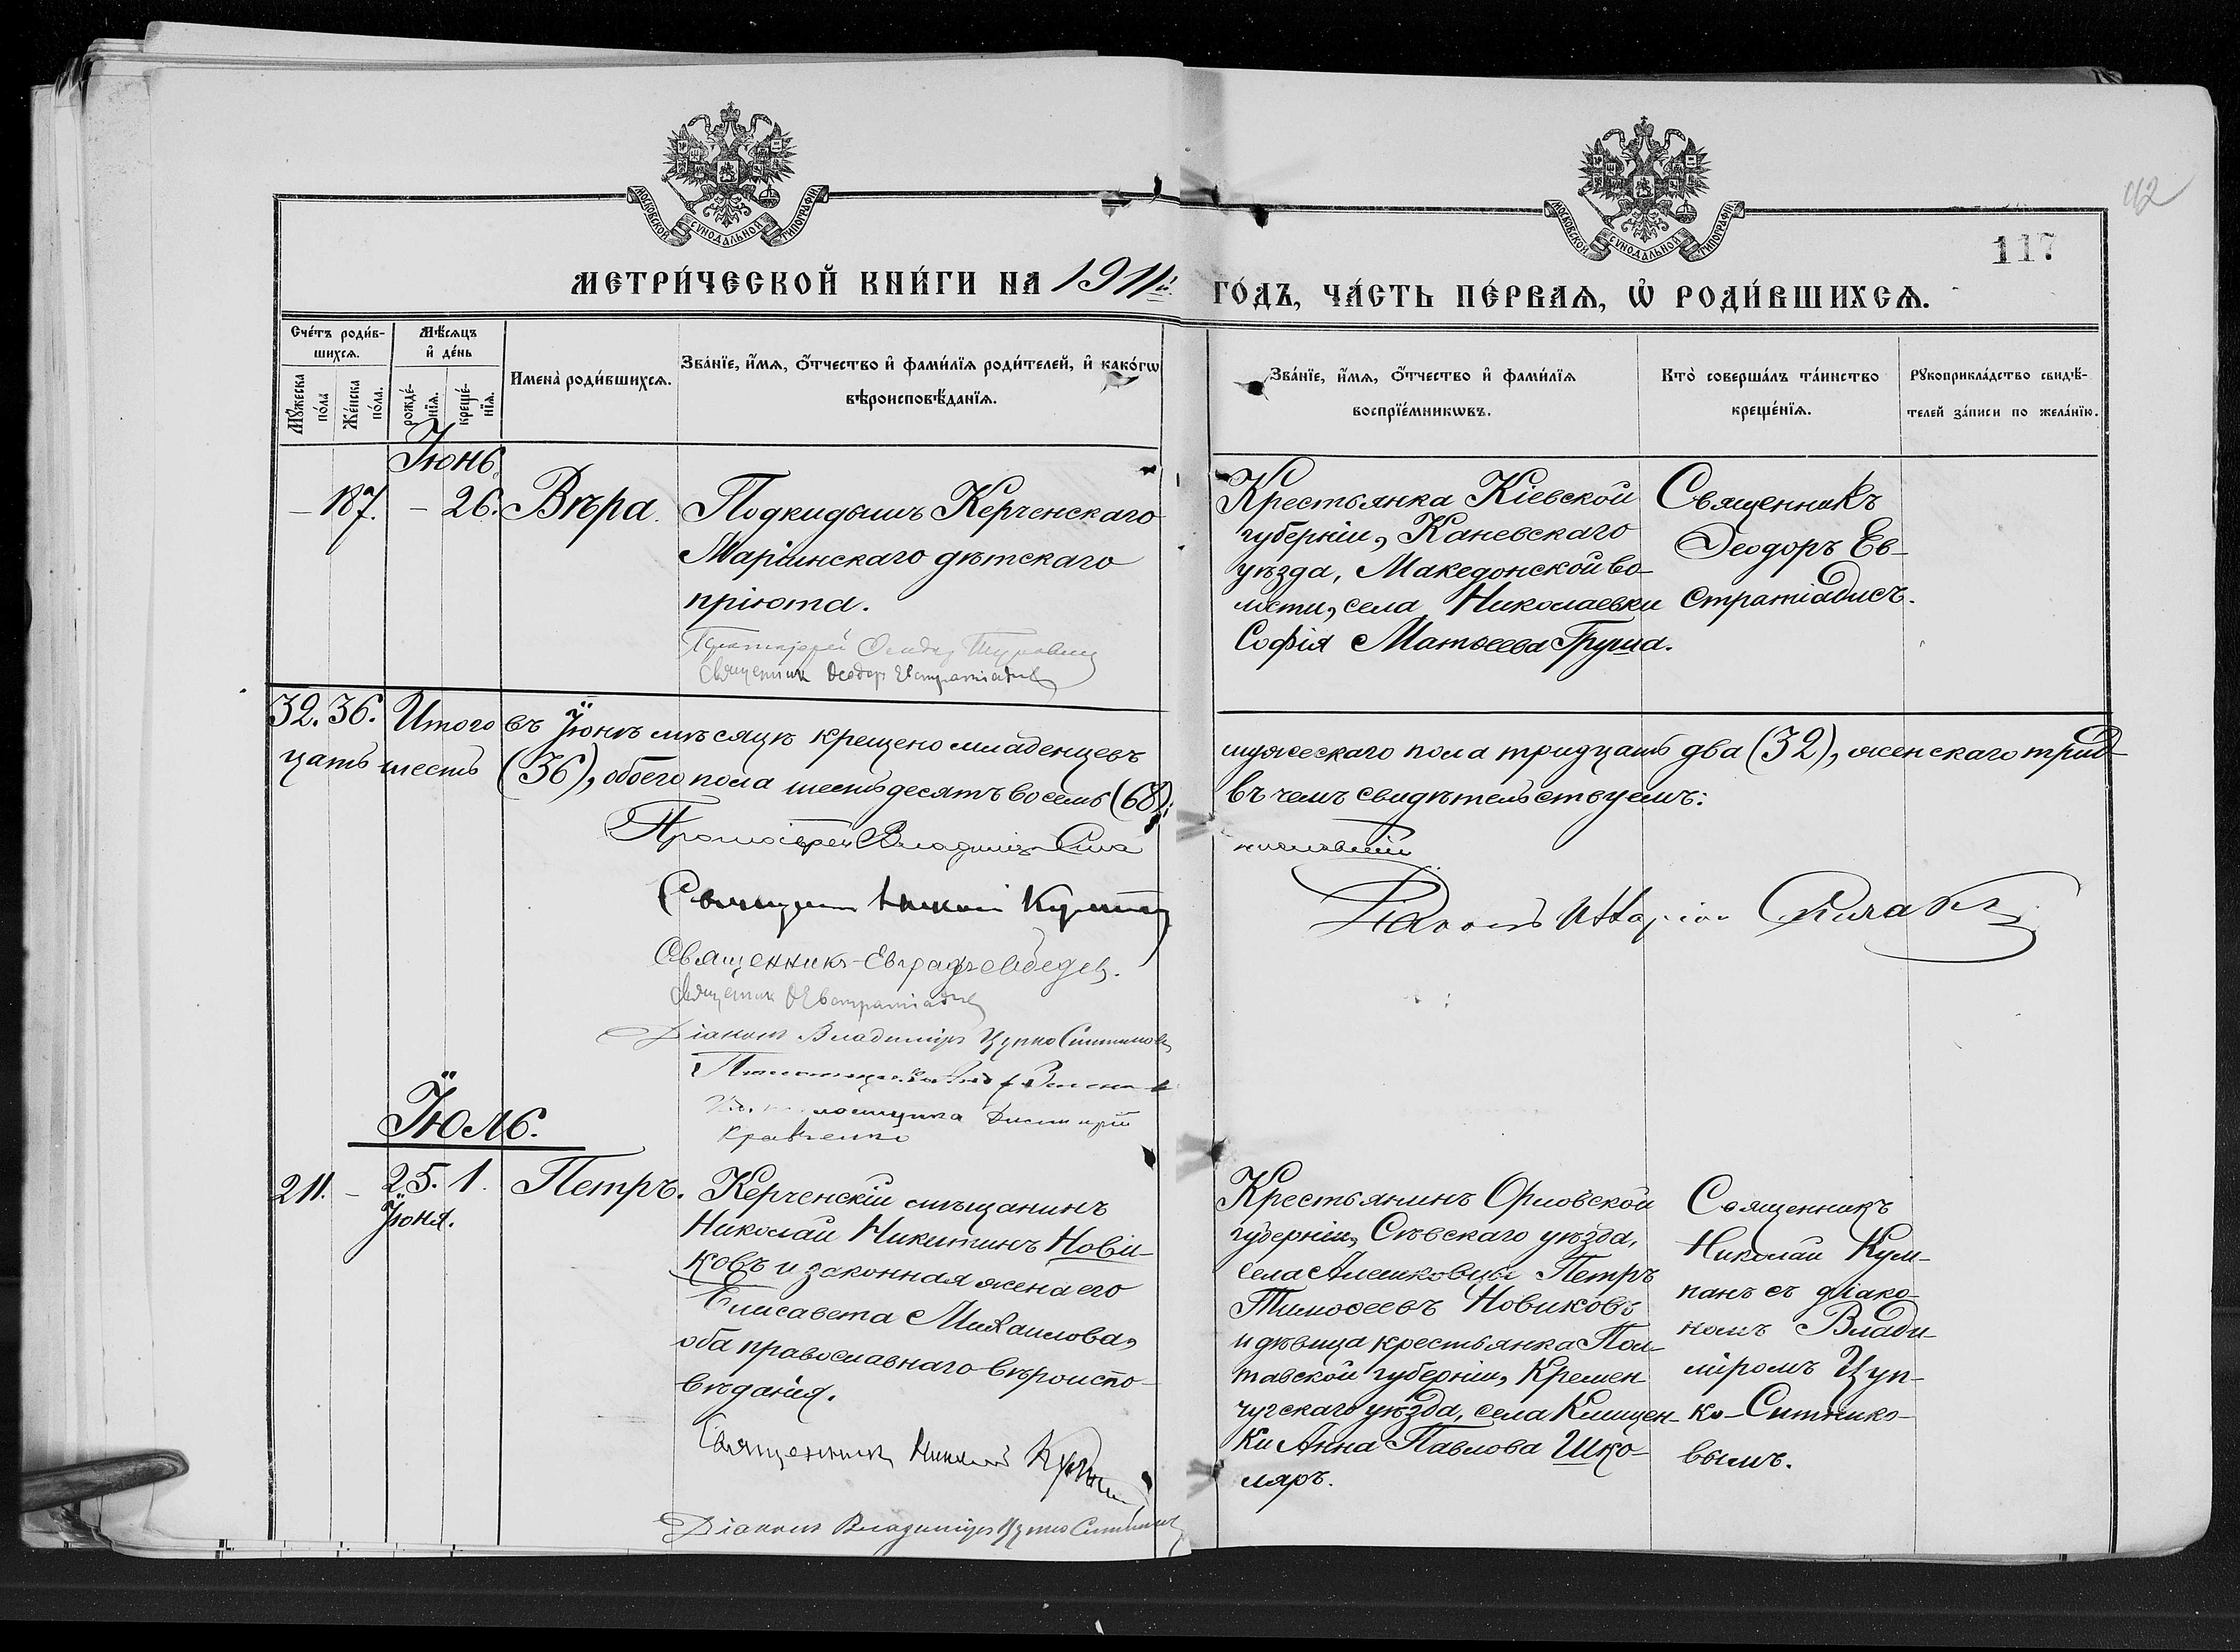 МОСКОВСКОЙ СѴНОДАЛЬНОЙ ТИПОГРАФІИ
МОСКОВСКОЙ СѴНОДАЛЬНОЙ ТИПОГРАФІИ
42
117
МЕТРИ́ЧЕСКОЙ КНИ́ГИ НА 1911й ГО́ДЪ, ЧА́СТЬ ПЕ́РВАѦ, Ѡ҆ РОДИ́ВШИХСѦ.
Сче́тъ роди́в-
шихсѧ.
Мѣ́сѧцъ
и҆ де́нь
Мꙋ́жеска
по́ла
Же́нска
по́ла.
рожде́-
нїѧ.
креще́-
нїѧ.
Имена̀ роди́вшихсѧ.
Зва́нїе, и҆́мѧ, ѻ҆́тчество и҆ фами́лїѧ роди́телей, и҆ како́гѡ
вѣроисповѣ́данїѧ.
Зва́нїе, и҆́мѧ, ѻ҆́тчество и҆ фами́лїѧ
воспрїе́мникѡвъ.
Кто̀ соверша́лъ та́инство
креще́нїѧ.
Рꙋкоприкла́дство свидѣ́-
телей за́писи по жела́нїю.
Іюнь
— 187. — 26. Вѣра.
Подкидышъ Керченскаго
Маріинскаго дѣтскаго
пріюта.
Священник Ѳеодор Евстратіадис
Крестьянка Кіевской
губерніи, Каневскаго
уѣзда, Македонской во-
лости, села Николаевки
Софія Матѳеева Груша.
Священникъ
Ѳеодоръ Ев-
стратіадисъ.
32. 36. Итого въ Іюнѣ мѣсяцѣ крещено младенцевъ мужескаго пола тридцать два (32), женскаго трид-
цать шесть (36), обоего пола шестьдесятъ восемь (68); въ чемъ свидѣтельствуемъ:
Протоіерей Владиміръ
Священник Николай Кумпан
Священникъ Евграфъ Лебедев.
Священник Ѳ Евстратіадис
Діаконъ Владиміръ Цупко Ситников
Діаконъ
псаломщика Дмитрій
Кравченко
Іюль.
211. — 25. 1. Петръ.
Іюня.
Керченскій мѣщанинъ
Николай Никитинъ Нови-
ковъ и законная жена его
Елисавета Михаилова,
оба православнаго вѣроиспо-
вѣданія.
Священникъ Николай Кумпан
Діаконъ Владиміръ Цупко Ситников
Крестьянинъ Орловской
губерніи, Сѣвскаго уѣзда,
села Алешковичи Петръ
Тимоѳеевъ Новиковъ
и дѣвица крестьянка Пол-
тавской губерніи, Кремен
чугскаго уѣзда, села Клищен-
ки Анна Павлова Шко-
ляръ.
Священникъ
Николай Кум-
панъ съ діако-
номъ Влади-
міромъ Цуп-
ко-Ситнико-
вымъ.